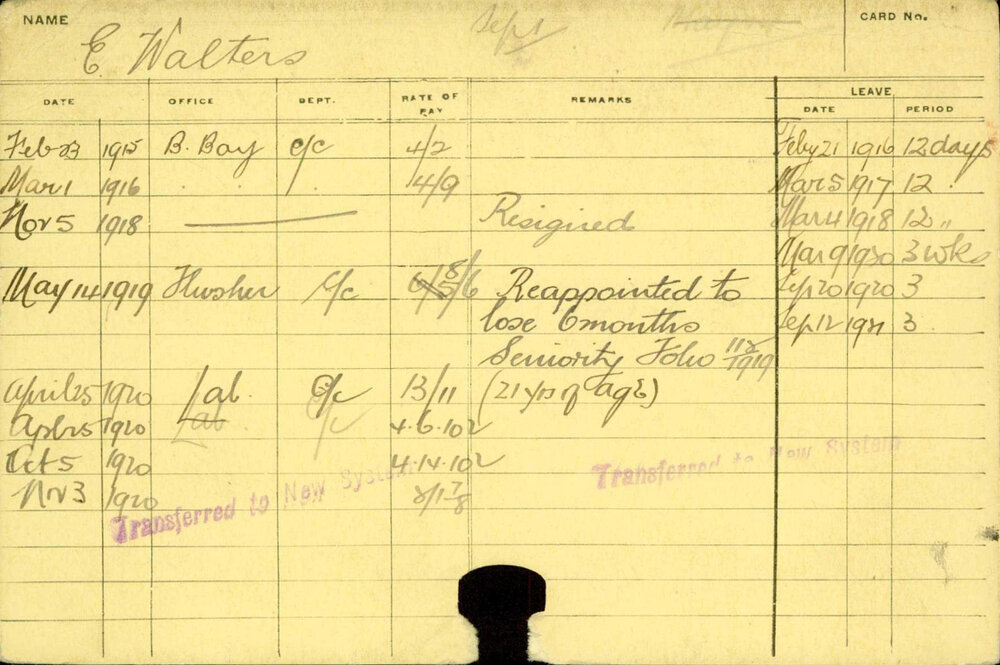 NAME
CARD No.
E Walters
Sept
DATE OFFICE DEPT. RATE OF PAY REMARKS LEAVE
DATE PERIOD
Feb 23 1915 B. Bay c/c 4/2 Feby 21 1916 12 days
Mar 1 1916 . . . 4/9 Mar 5 1917 12 "
Nov 5 1918 Resigned Mar 4 1918 12 "
Mar 9 1920 3 wks
May 14 1919 c/c Reappointed to Sep 20 1920 3
lose 6 months Sep 12 1921 3
Seniority Folio 112/1919
April 25 1920 Lab. c/c 13/11 (21 yrs of age)
Apl 25 1920 Lab c/c 4.6.10 2
Oct 5 1920 4.14.10 2
Nov 3 1920
Transferred to New System
Transferred to New System